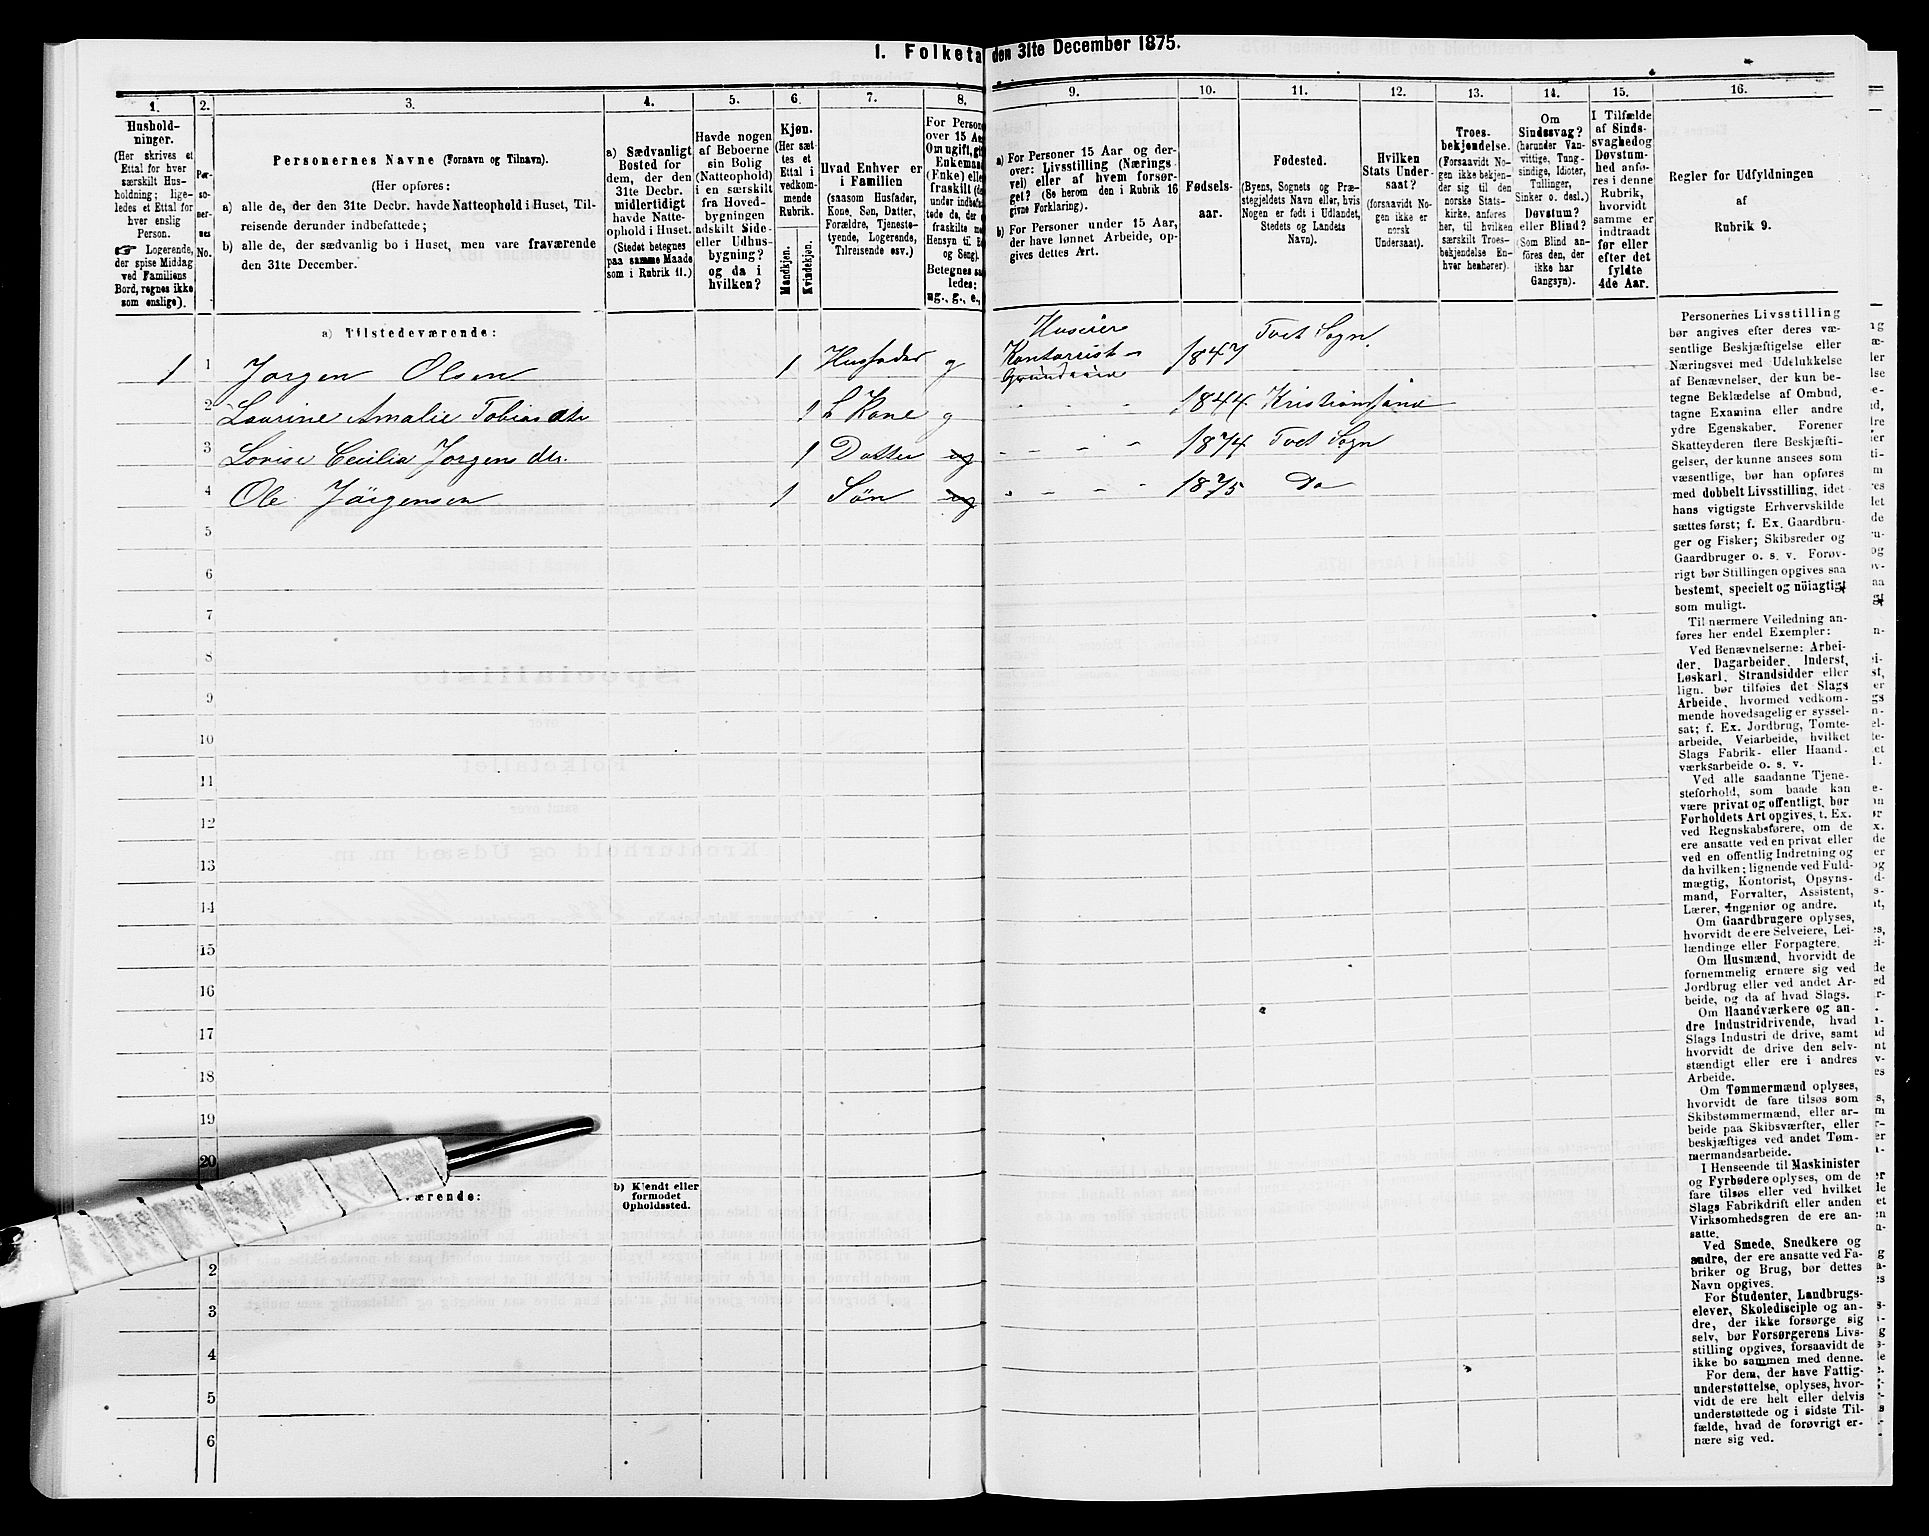 1. Folketa den 31te December 1875.
1. 2. 3. 4. 5. 6. 7. 8. 9. 10. 11. 12. 13. 14. 15. 16.
Hushold-
ninger.
(Her skrives et
Ettal for hver
særskilt Hus-
holdning; lige-
ledes et Ettal for
hver enslig
Person.
☛ Logerende,
der spise Middag
ved Familiens
Bord, regnes ikke
som enslige).
Per-
so-
ner-
nes
No.
Personernes Navne (Fornavn og Tilnavn).
(Her opføres:
a) alle de, der den 31te Decbr. havde Natteophold i Huset, Til-
reisende derunder indbefattede;
b) alle de, der sædvanlig bo i Huset, men vare fraværende
den 31te December.
a) Sædvanligt
Bosted for
dem, der den
31te Decbr.
midlertidigt
havde Natte-
ophold i Huset.
(Stedet betegnes
paa samme Maade
som i Rubrik 11.)
Havde nogen
af Beboerne
sin Bolig
(Natteophold)
i en særskilt
fra Hoved-
bygningen
adskilt Side-
eller Udhus-
bygning?
og da i
hvilken?
Kjøn.
(Her sæt-
tes et
Ettal i
vedkom-
mende
Rubrik.
Mandkjøn.
Kvindekjøn.
Hvad Enhver er
i Familien
(saasom Husfader,
Kone, Søn, Datter,
Forældre, Tjeneste-
tyende, Logerende,
Tilreisende osv.)
For Person
over 15 Aa
Om ugift, gi
Enkemand
(Enke) elle
fraskilt (de
under indbefat-
tede de, der e
fraskilte m
Hensyn til B
og Seng).
Betegnes saa
ledes:
ug., g., e.,
a) For Personer 15 Aar og der-
over: Livsstilling (Nærings
vei) eller af hvem forsør-
get? (Se herom den i Rubrik 16
givne Forklaring).
b) For Personer under 15 Aar,
der have lønnet Arbeide, op-
gives dettes Art.
Fødsels-
aar.
Fødested.
(Byens, Sognets og Præ-
stegjeldets Navn eller, hvis
Nogen er født i Udlandet,
Stedets og Landets
Navn).
Hvilken
Stats Under-
saat?
(forsaavidt No-
gen ikke er
norsk
Undersaat).
Troes-
bekjendelse.
(Forsaavidt No-
gen ikke bekjen-
der sig til den
norske Stats-
kirke, anføres
her, til hvilken
særskilt Troes-
bekjendelse En-
hver henhører).
Om
Sindssvag?
(herunder Van-
vittige, Tung-
sindige, Idioter,
Tullinger,
Sinker o. desl.)
Døvstum?
eller Blind?
(Som Blind an-
føres den, der
ikke har
Gangsyn).
I Tilfælde
af Sinds-
svaghed og
Døvstum-
hed anfø-
res i denne
Rubrik,
hvorvidt
samme er
indtraadt
før eller
efter det
fyldte
4de Aar.
Regler for Udfyldningen
af
Rubrik 9.
a) Tilstedeværende:
1 1 Jorgen Olsen 1 Husfader g Huseier Kontorist - 1847 Tvet Sogn.
2 Laurine Amalie Tobias dtr 1 Kone g " - - - 1844 Kristianssand
3 Lovise Cecilia Jorgens dtr. 1 Datter ug - - - - 1874 Tvet Sogn
4 Ole Jörgensen 1 Søn ug " - - - - 1875 Do
5
6
7
8
9
10
11
12
13
14
15
16
17
18
19
20
ærende:
b) Kjendt eller
formodet
Opholdssted.
2
3
4
5
6
Personernes Livsstilling
bør angives efter deres væ-
sentlige Beskjæftigelse eller
Næringsvei med Udelukkelse
af Benævnelser, der kun be-
tegne Beklædelse af Ombud,
tagne Examina eller andre
ydre Egenskaber. Forener
Skatteyderen flere Beskjæfti-
gelser, der kunne ansees som
væsentlige, bør han opføres
med dobbelt Livsstilling, idet
hans vigtigste Erhvervskilde
sættes først; f. Ex. Gaardbru-
ger og Fisker; Skibsreder og
Gaardbruger o. s. v. Forøv-
rigt bør Stillingen opgives saa
bestemt, specielt og nöiagtigt
som muligt.
Til nærmere Veiledning an-
føres her endel Exempler:
Ved Benævnelserne: Arbei-
der, Dagarbeider, Inderst,
Løskarl, Strandsidder eller
lign. bør tilføies det Slags
Arbeide, hvormed vedkom-
mende hovedsagelig er syssel-
sat; f. Ex. Jordbrug, Tomte-
arbeide, Veiarbeide, hvilket
Slags Fabrik- eller Haand-
værksarbeide o. s. v.
Ved alle saadanne Tjene-
steforhold, som baade kan
være privat og offentligt, bør
Forholdets Art opgives, t. Ex.
ved Regnskabsførere, om de
ere ansatte ved en privat eller
ved en offentlig Indretning og
da hvilken; lignende ved Fuld-
mægtig, Kontorist, Opsyns-
mand, Forvalter, Assistent,
Lærer, Ingeniør og andre.
Om Gaardbrugere oplyses,
hvorvidt de ere Selveiere, Lei-
lændinge eller Forpagtere.
Om Husmænd, hvorvidt de
fornemmelig ernære sig ved
Jordbrug eller ved andet Ar-
beide, og da af hvad Slags.
Om Haandværkere og an-
dre Industridrivende, hvad
Slags Industri de drive, samt
hvorvidt de drive den selv-
stændigt eller ere i andres
Arbeide.
Om Tømmermænd oplyses,
hvorvidt de fare tilsøs som
Skibstømmermænd, eller ar-
beide paa Skibsværfter, eller
beskjæftiges ved andet Tøm-
mermandsarbeide.
I Henseende til Maskinister
og Fyrbødere oplyses, om de
fare tilsøs eller ved hvilket
Slags Fabrikdrift eller anden
Virksomhedsgren de ere an-
satte.
Ved Smede, Snedkere og
andre, der ere ansatte ved Fa-
briker og Brug, bør dettes
Navn opgives.
For Studenter, Landbrugs-
elever, Skoledisciple og an-
dre, der ikke forsørge sig
selv, bør Forsørgerens Livs-
stilling opgives, forsaavidt de
ikke bo sammen med denne.
For dem, der have Fattig-
understøttelse, oplyses, hvor-
vidt de ere helt eller delvis
understøttede og i sidste Til-
fælde, hvad de forøvrigt er-
nære sig ved.